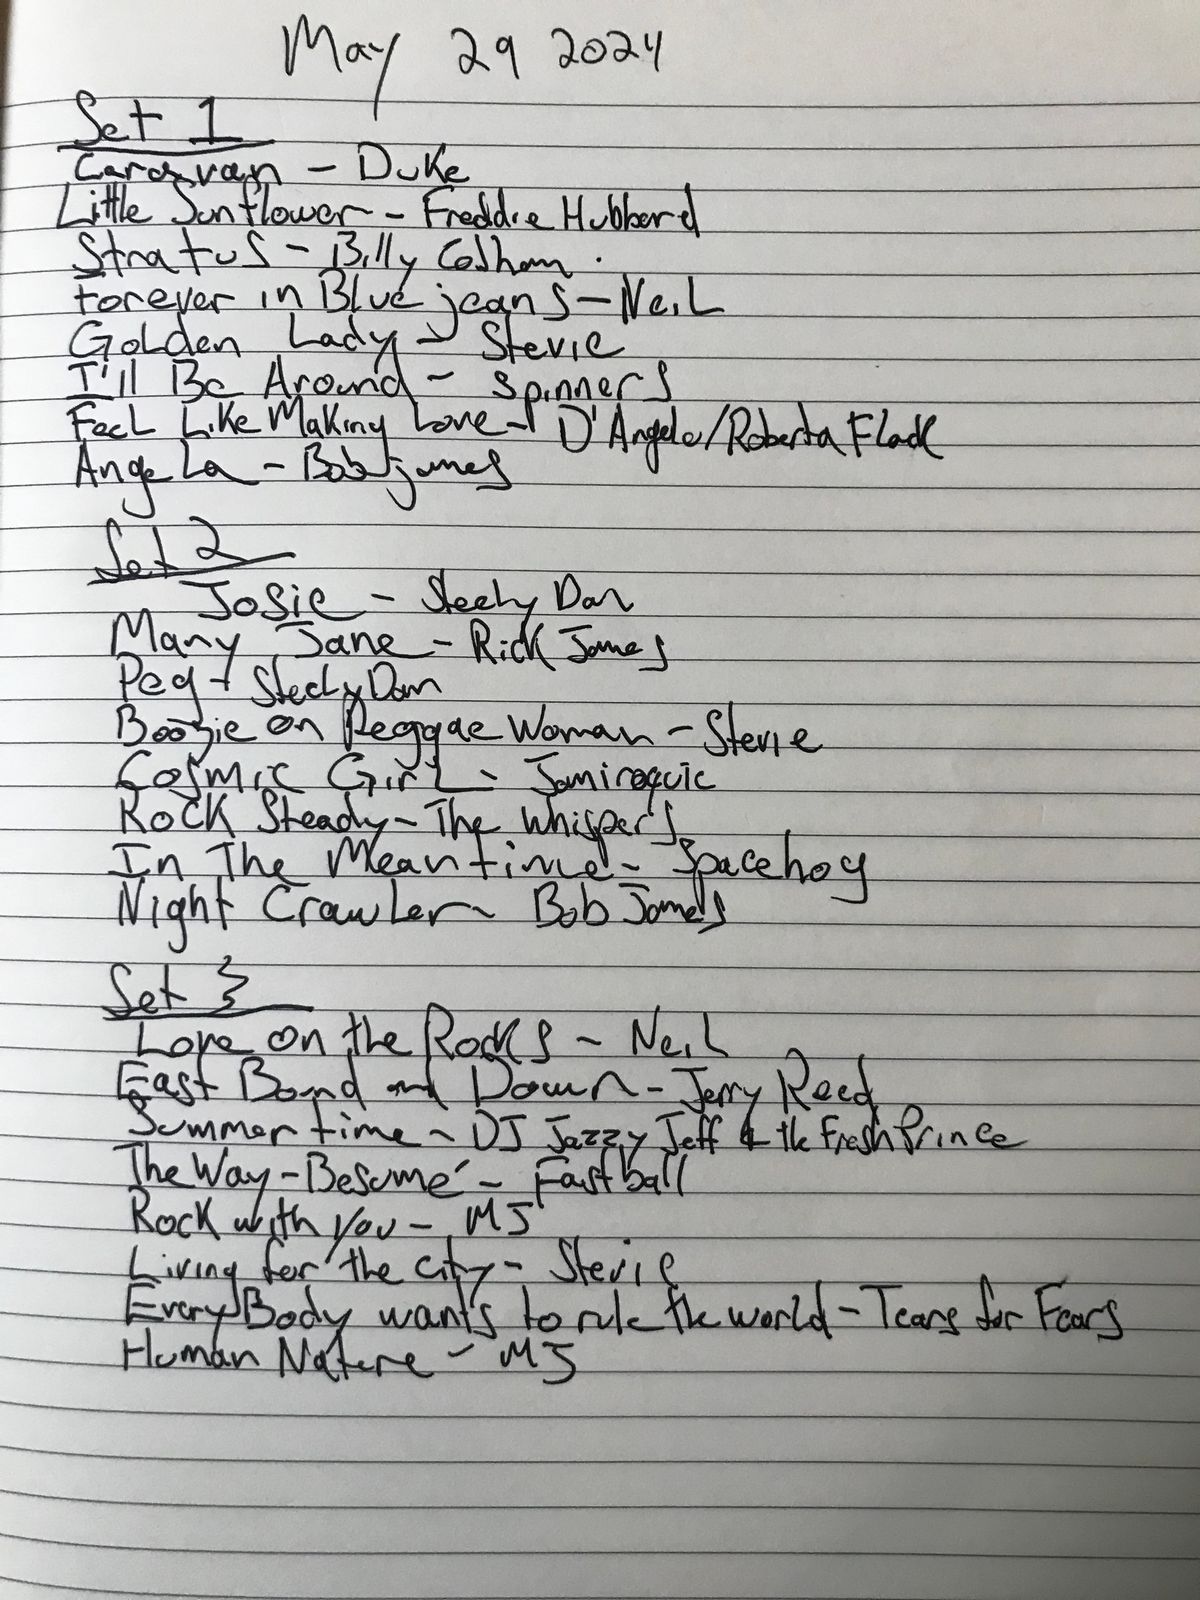 May 29 2024
Set 1
Caravan - Duke
Little Sunflower - Freddie Hubbard
Stratus - Billy Cobham
Forever in Blue jeans - Neil
Golden Lady - Stevie
I'll Be Around - Spinners
Feel Like Making Love - D'Angelo/Roberta Flack
Angela - Bob james
Set 2
Josie - Steely Dan
Mary Jane - Rick James
Peg - Steely Dan
Boogie on Reggae Woman - Stevie
Cosmic Girl - Jamiroquic
Rock Steady - The Whispers
In The Meantime - Spacehog
Night Crawler - Bob James
Set 3
Love on the Rocks - Neil
East Bond and Down - Jerry Reed
Summertime - DJ Jazzy Jeff & the Fresh Prince
The Way - Besumé - Fastball
Rock with you - MJ
Living for the city - Stevie
EveryBody wants to rule the world - Tears for Fears
Human Nature - MJ